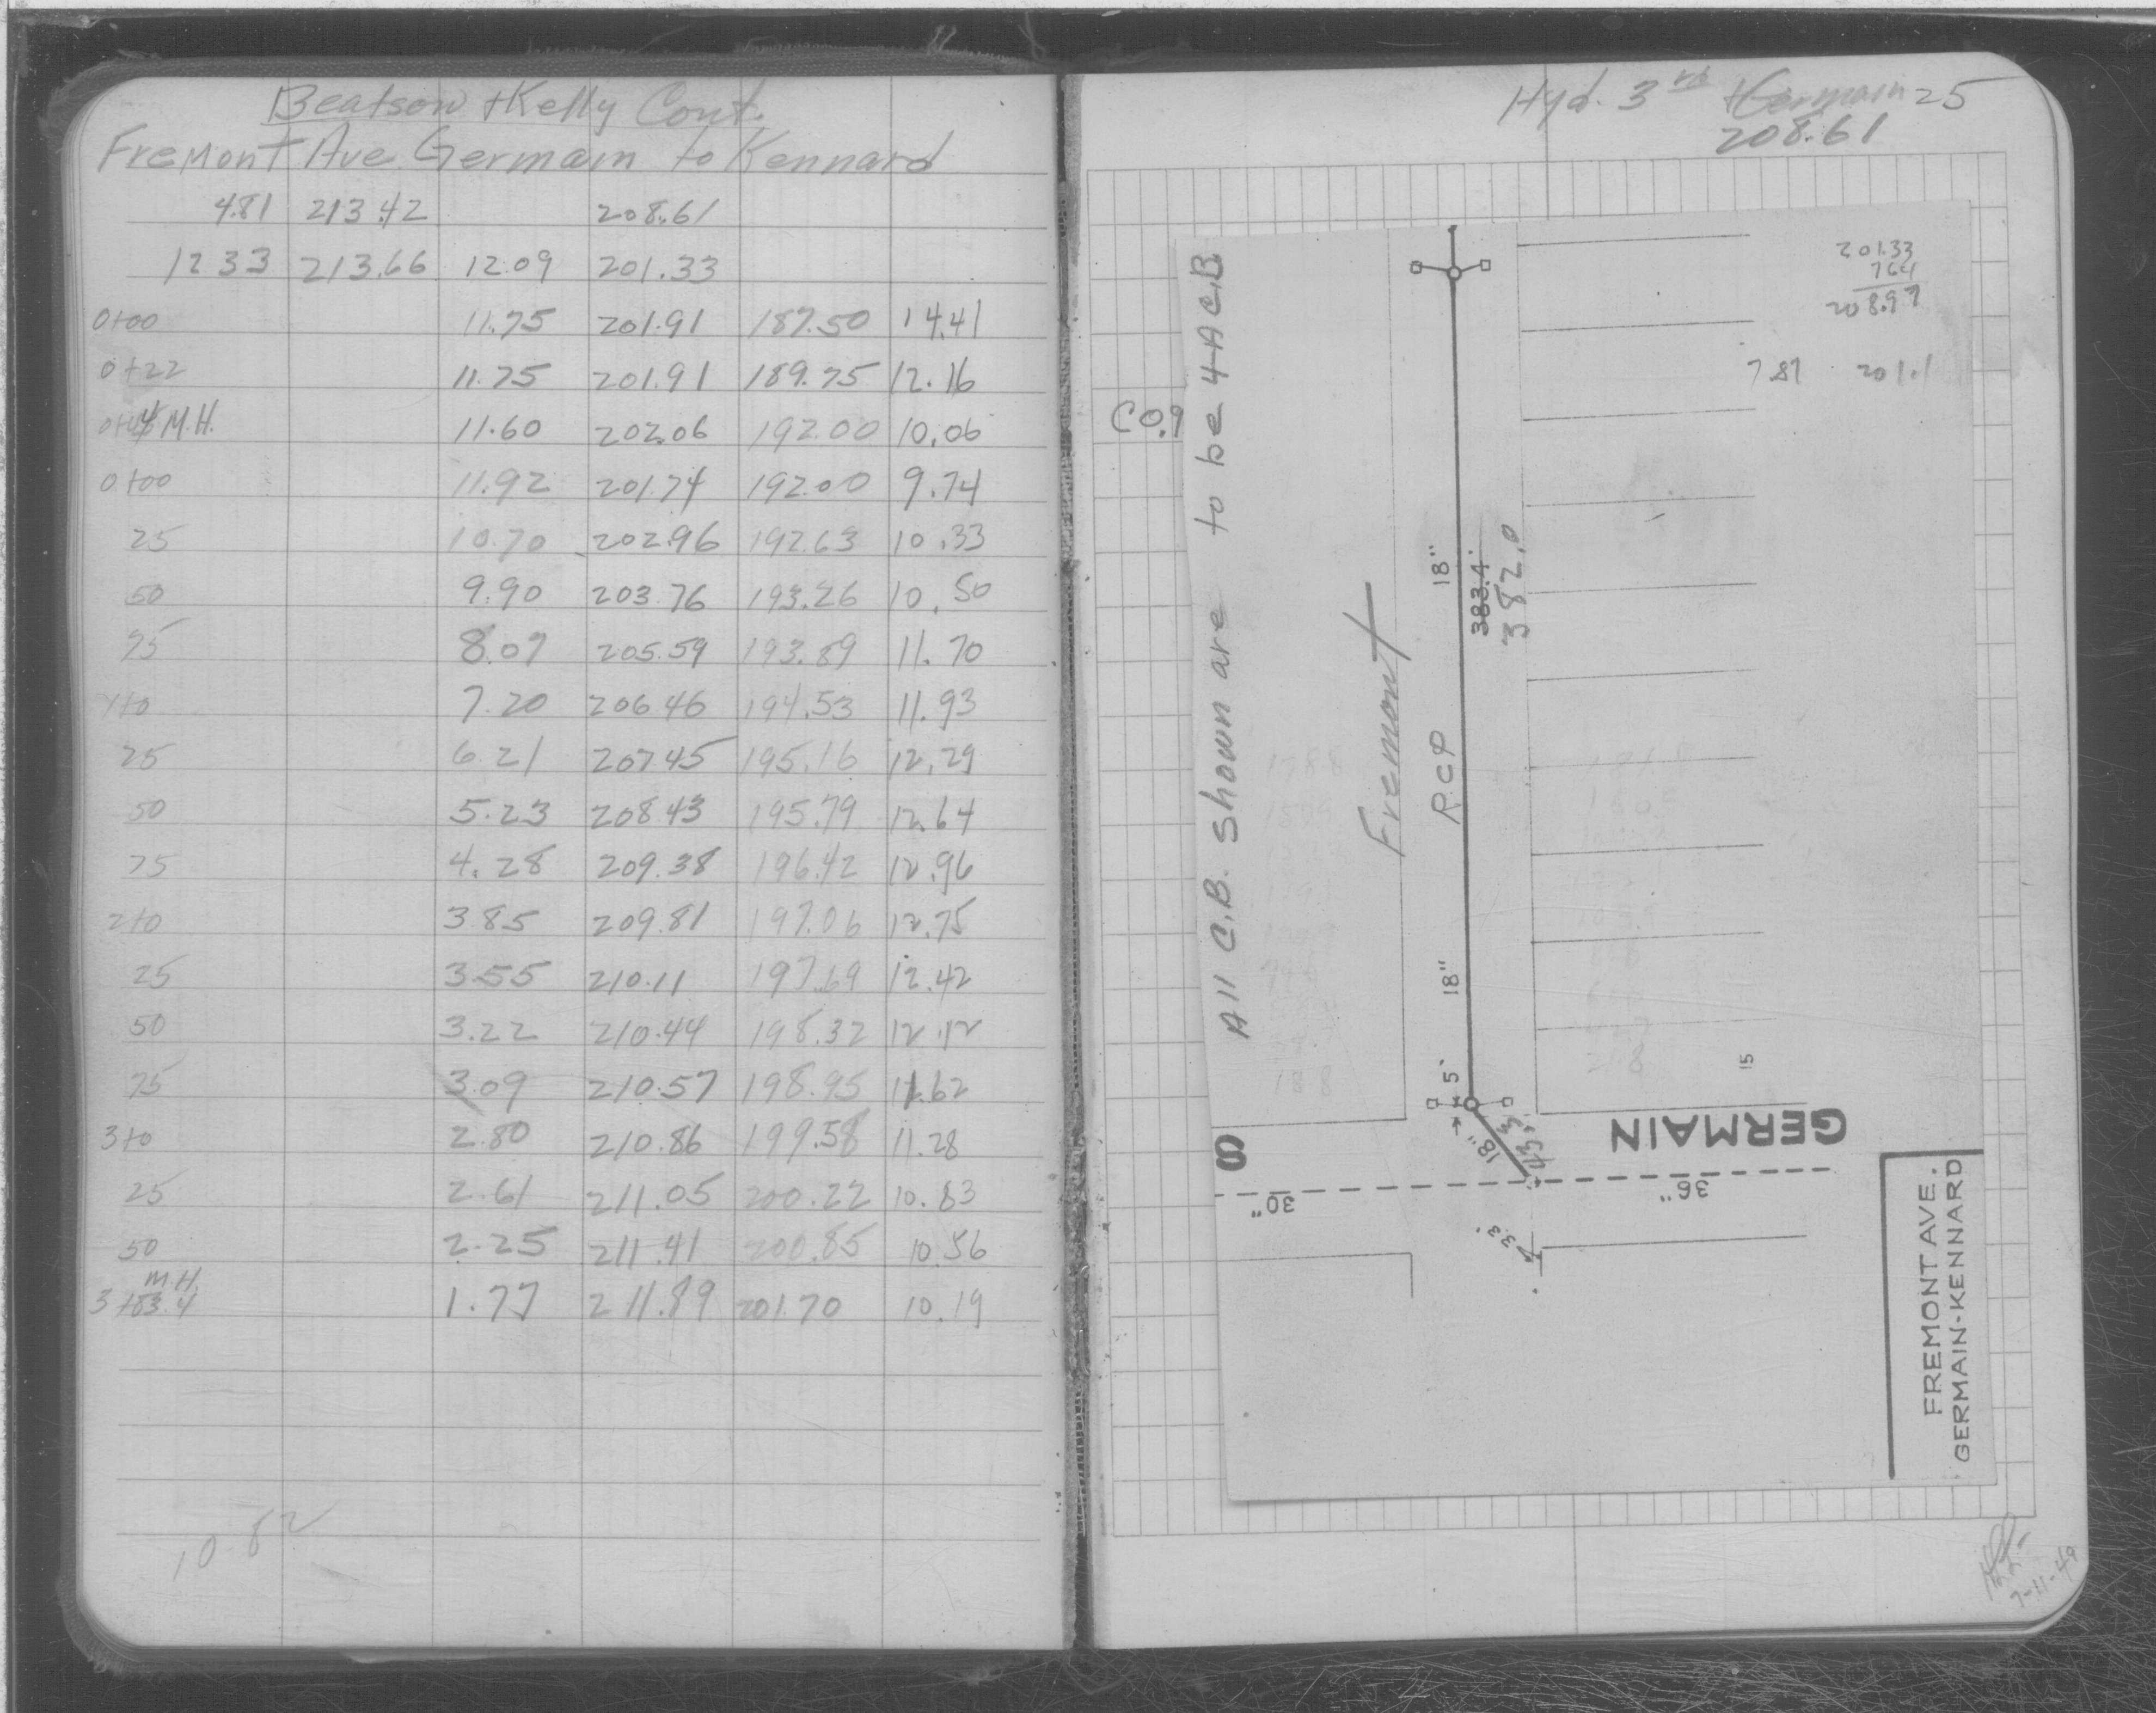 Beatson + Kelly Cont.
Fremont Ave Germain to Kennard
4.81 213.42 208.61
12 33 213.66 12.09 201.33
0+00 11.75 201.91 187.50 14.41
0+22 11.75 201.91 189.75 12.16
M.H. 11.60 202.06 192.00 10.06
0+00 11.92 201.74 192.00 9.74
25 10.70 202.96 192.63 10.33
50 9.90 203.76 193.26 10.50
75 8.07 205.59 193.89 11.70
1+0 7.20 206.46 194.53 11.93
25 6.21 207.45 195.16 12.29
50 5.23 208.43 195.79 12.64
75 4.28 209.38 196.42 12.96
2+0 3.85 209.81 197.06 12.75
25 3.55 210.11 197.69 12.42
50 3.22 210.44 198.32 12.12
75 3.09 210.57 198.95 11.62
3+0 2.80 210.86 199.58 11.28
25 2.61 211.05 200.22 10.83
50 2.25 211.41 200.85 10.56
M.H.
3+83.4 1.77 211.89 201.70 10.19
10.82
Hyd. 3rd Germain 25
208.61
201.33
764
208.97
7.87 201.1
C0.9
All C.B. Shown are to be 4-A C.B.
Fremont
18"
383.4'
382.0
RCP
18"
5'
18"
43.3'
GERMAIN
15
8
30"
36"
33'
FREMONT AVE.
GERMAIN-KENNARD
7-11-49